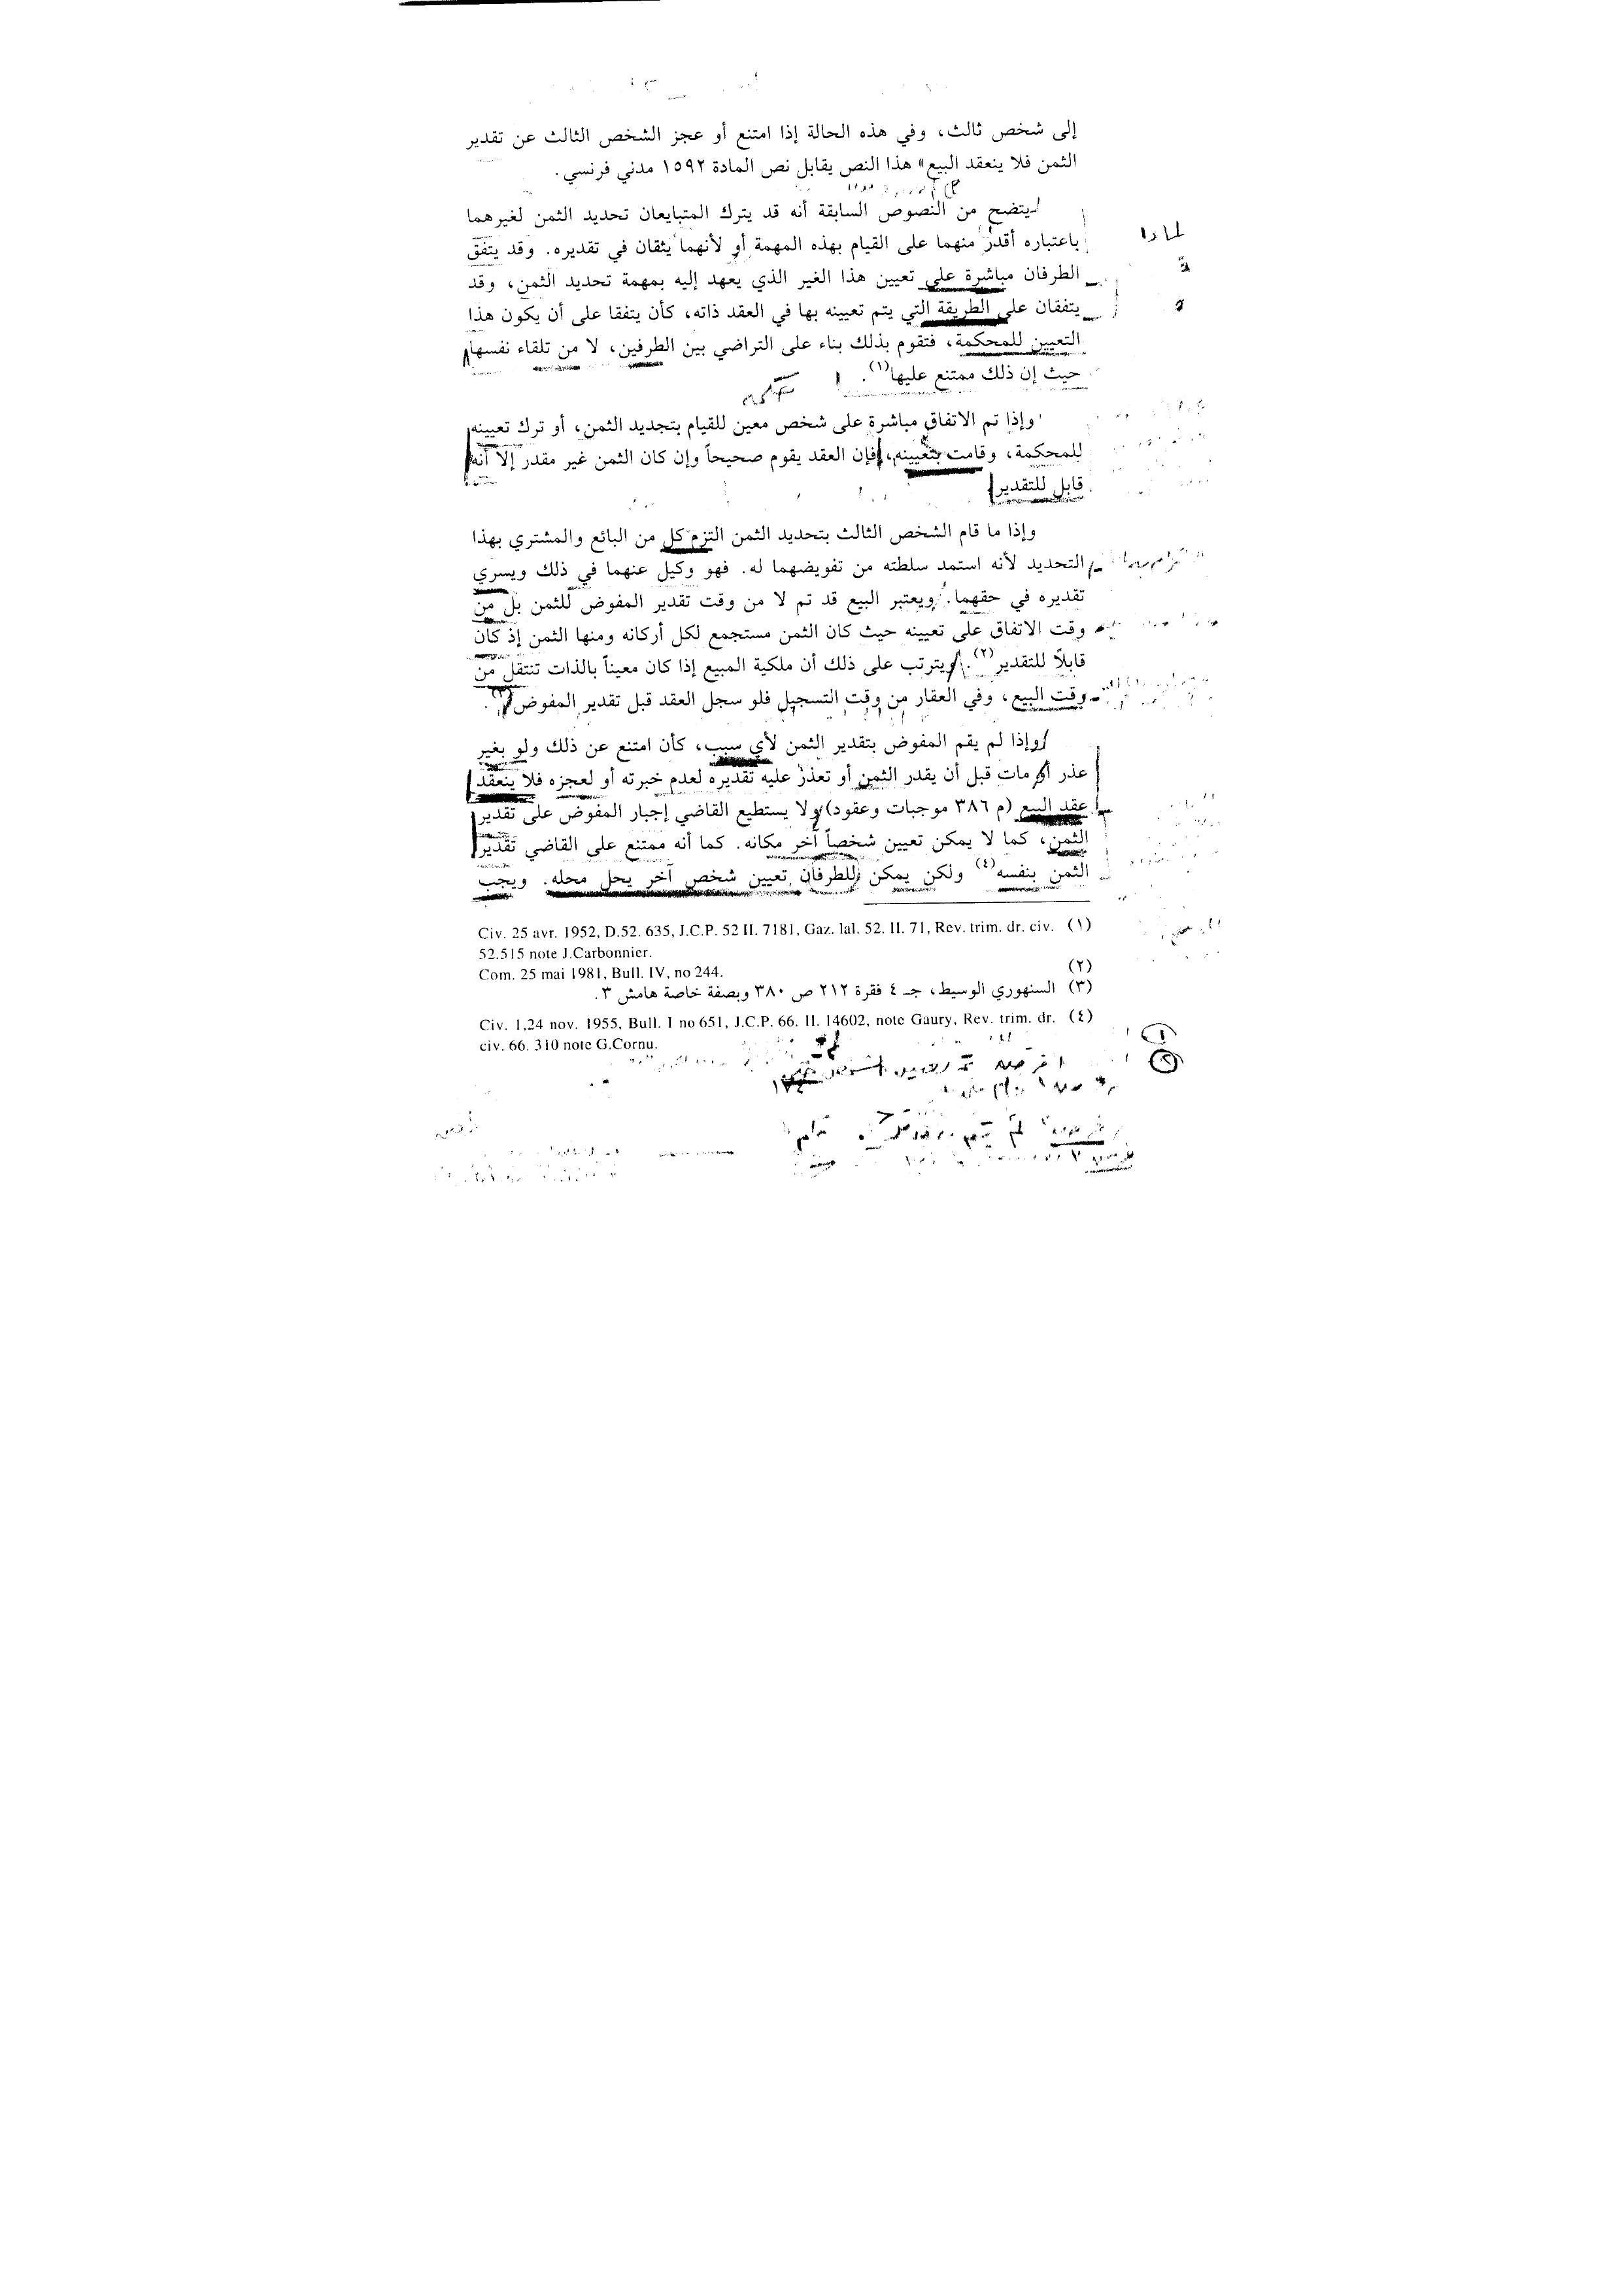 إلى شخص ثالث، وفي هذه الحالة إذا امتنع أو عجز الشخص الثالث عن تقدير
الثمن فلا ينعقد البيع» هذا النص يقابل نص المادة ١٥٩٢ مدني فرنسي.
يتضح من النصوص السابقة أنه قد يترك المتبايعان تحديد الثمن لغيرهما
باعتباره أقدر منهما على القيام بهذه المهمة أو لأنهما يثقان في تقديره. وقد يتفق
لماذا
الطرفان مباشرة على تعيين هذا الغير الذي يعهد إليه بمهمة تحديد الثمن، وقد
يتفقان على الطريقة التي يتم تعيينه بها في العقد ذاته، كأن يتفقا على أن يكون هذا
التعيين للمحكمة، فتقوم بذلك بناء على التراضي بين الطرفين، لا من تلقاء نفسها
حيث إن ذلك ممتنع عليها(١).
وإذا تم الاتفاق مباشرة على شخص معين للقيام بتجديد الثمن، أو ترك تعيينه
للمحكمة، وقامت بتعيينه، فإن العقد يقوم صحيحاً وإن كان الثمن غير مقدر إلا أنه
قابل للتقدير
وإذا ما قام الشخص الثالث بتحديد الثمن التزم كل من البائع والمشتري بهذا
التحديد لأنه استمد سلطته من تفويضهما له. فهو وكيل عنهما في ذلك ويسري
تقديره في حقهما. ويعتبر البيع قد تم لا من وقت تقدير المفوض للثمن بل من
وقت الاتفاق على تعيينه حيث كان الثمن مستجمع لكل أركانه ومنها الثمن إذ كان
قابلاً للتقدير(٢). ويترتب على ذلك أن ملكية المبيع إذا كان معيناً بالذات تنتقل من
وقت البيع، وفي العقار من وقت التسجيل فلو سجل العقد قبل تقدير المفوض(٣).
وإذا لم يقم المفوض بتقدير الثمن لأي سبب، كأن امتنع عن ذلك ولو بغير
عذر أو مات قبل أن يقدر الثمن أو تعذر عليه تقديره لعدم خبرته أو لعجزه فلا ينعقد
عقد البيع (م ٣٨٦ موجبات وعقود) ولا يستطيع القاضي إجبار المفوض على تقدير
الثمن، كما لا يمكن تعيين شخصاً آخر مكانه. كما أنه ممتنع على القاضي تقدير
الثمن بنفسه(٤) ولكن يمكن للطرفان تعيين شخص آخر يحل محله. ويجب
(١) Civ. 25 avr. 1952, D.52. 635, J.C.P. 52 II. 7181, Gaz. lal. 52. II. 71, Rev. trim. dr. civ.
52.515 note J.Carbonnier.
(٢) Com. 25 mai 1981, Bull. IV, no 244.
(٣) السنهوري الوسيط، جـ ٤ فقرة ٢١٢ ص ٣٨٠ وبصفة خاصة هامش ٣.
(٤) Civ. 1,24 nov. 1955, Bull. I no 651, J.C.P. 66. II. 14602, note Gaury, Rev. trim. dr.
civ. 66. 310 note G.Cornu.